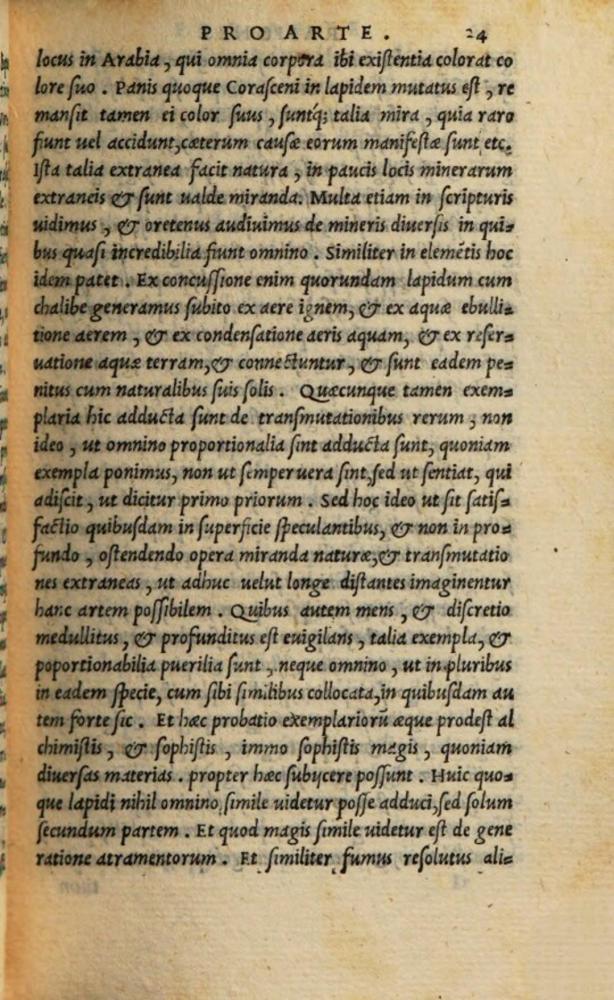 PRO ARTE. 24
locus in Arabia, qui omnia corpora ibi existentia colorat co
lore suo. Panis quoque Corasceni in lapidem mutatus est, re
mansit tamen ei color suus, suntq́; talia mira, quia raro
fiunt uel accidunt, cæterum causæ eorum manifestæ sunt, etc.
Ista talia extranea facit natura, in paucis locis minerarum
extraneis & sunt ualde miranda. Multa etiam in scripturis
uidimus, & oretenus audiuimus de mineris diuersis in qui-
bus quasi incredibilia fiunt omnino. Similiter in elemẽtis hoc
idem patet. Ex concussione enim quorundam lapidum cum
chalibe generamus subito ex aere ignem, & ex aquæ ebulli-
tione aerem, & ex condensatione aeris aquam, & ex reser-
uatione aquæ terram, & connectuntur, & sunt eadem pe-
nitus cum naturalibus suis solis. Quæcunque tamen exem-
plaria hic adducta sunt de transmutationibus rerum, non
ideo, ut omnino proportionalia sint adducta sunt, quoniam
exempla ponimus, non ut semper uera sint, sed ut sentiat, qui
adiscit, ut dicitur primo priorum. Sed hoc ideo ut sit satis-
factio quibusdam in superficie speculantibus, & non in pro-
fundo, ostendendo opera miranda naturæ, & transmutatio
nes extraneas, ut adhuc uelut longe distantes imaginentur
hanc artem possibilem. Quibus autem mens, & discretio
medullitus, & profunditus est euigilans, talia exempla, &
poportionabilia puerilia sunt, neque omnino, ut in pluribus
in eadem specie, cum sibi similibus collocata, in quibusdam au
tem forte sic. Et hæc probatio exemplariorũ æque prodest al
chimistis, & sophistis, immo sophistis magis, quoniam
diuersas materias. propter hæc subijcere possunt. Huic quo-
que lapidi nihil omnino, simile uidetur posse adduci, sed solum
secundum partem. Et quod magis simile uidetur est de gene
ratione atramentorum. Et similiter fumus resolutus ali-